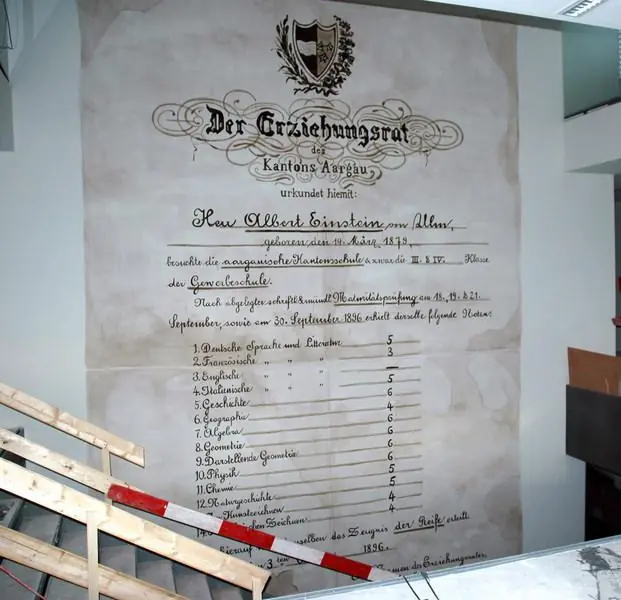 Der Erziehungsrat
des
Kantons Aargau
urkundet hiemit:
Herr Albert Einstein von Ulm,
geboren den 14. März 1879,
besuchte die aargauische Kantonsschule & zwar die III. & IV. Klasse
der Gewerbeschule.
Nach abgelegter schriftl. & mündl. Maturitätsprüfung am 18. 19. & 21.
September, sowie am 30. September 1896 erhielt derselbe folgende Noten:
1. Deutsche Sprache und Litteratur 5
2. Französische " " " 3
3. Englische " " " —
4. Italienische " " " 5
5. Geschichte 6
6. Geographie 4
7. Algebra 6
8. Geometrie 6
9. Darstellende Geometrie 6
10. Physik 6
11. Chemie 5
12. Naturgeschichte 5
Kunstzeichnen 4
14. Zeichnen 4
Hierauf demselben das Zeugnis der Reife erteilt.
3. ten 1896.
Namen des Erziehungsrates,